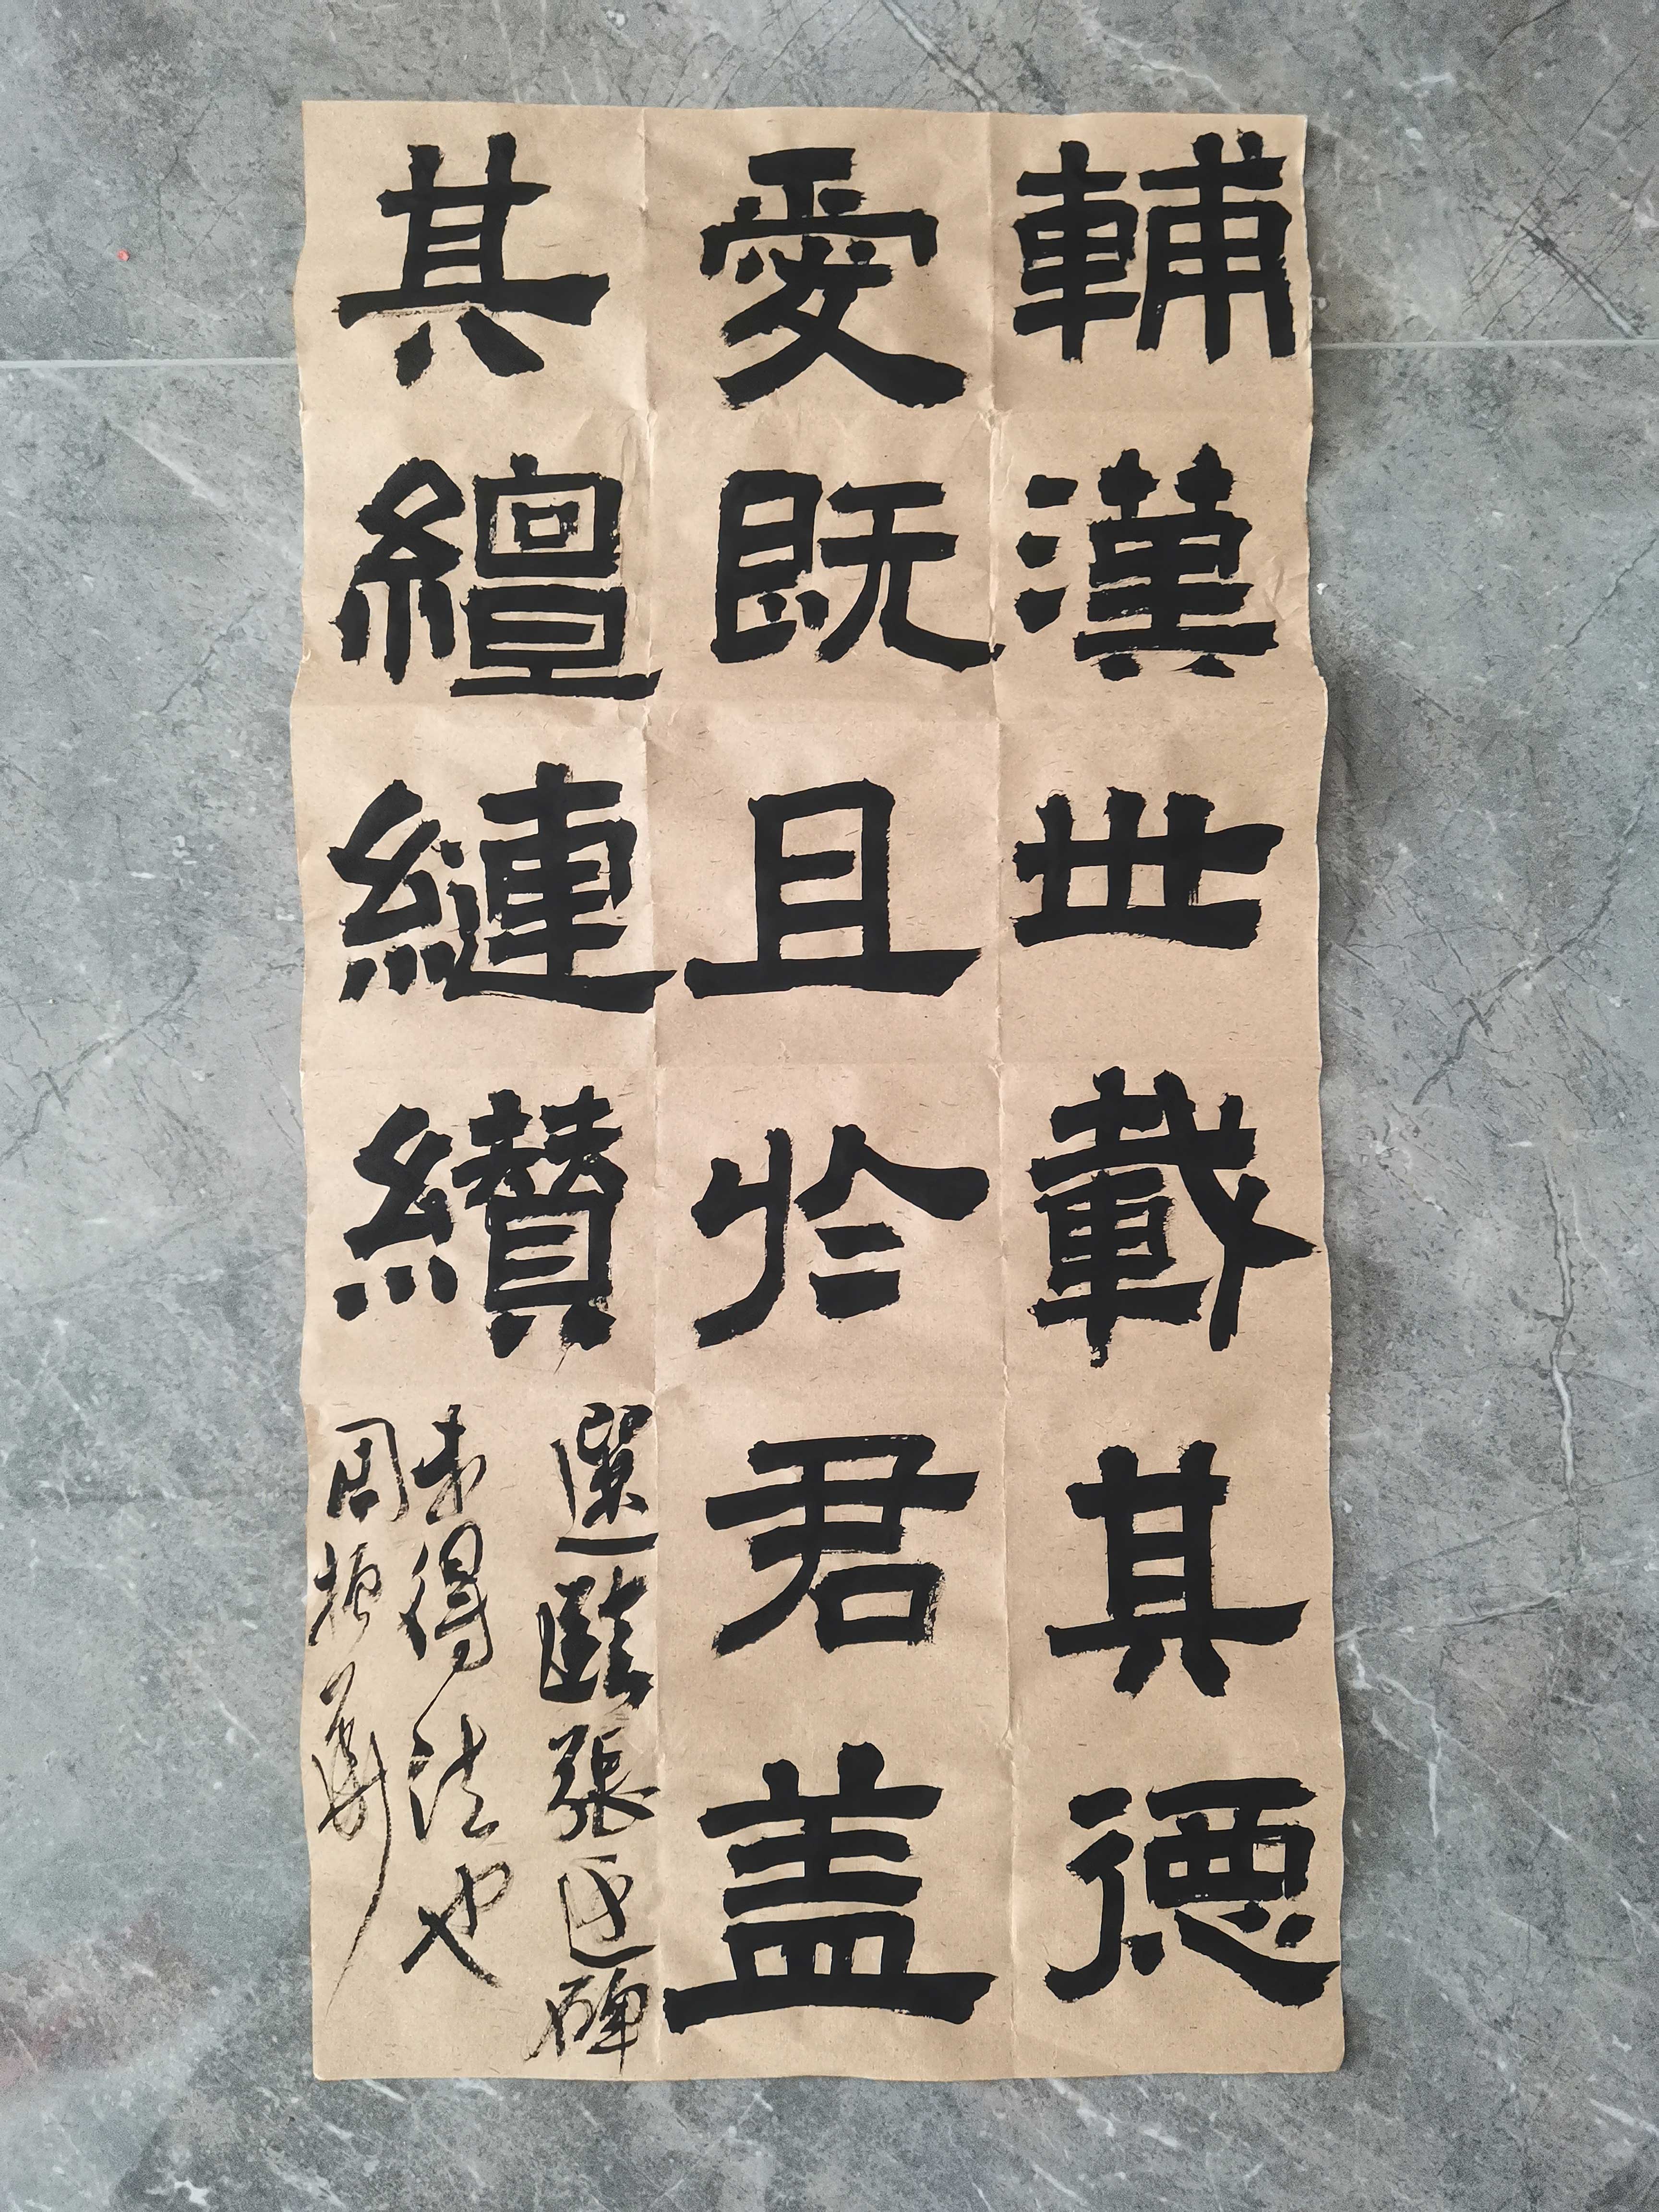 輔漢世載其德
爰既且於君蓋
其繵縺纘
選臨張遷碑
未得法也
周振華